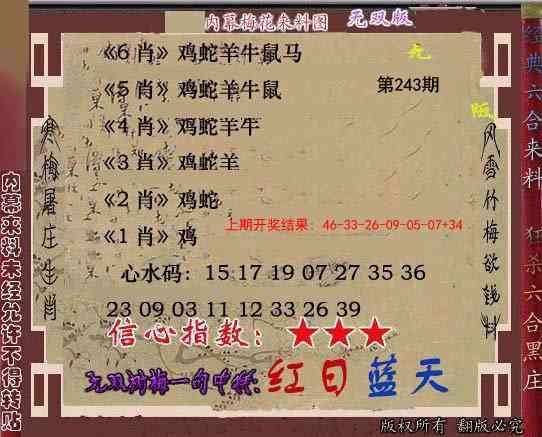 内幕梅花来料图 无双版
《6 肖》鸡蛇羊牛鼠马
《5 肖》鸡蛇羊牛鼠
第243期
《4 肖》鸡蛇羊牛
《3 肖》鸡蛇羊
《2 肖》鸡蛇
上期开奖结果：46-33-26-09-05-07+34
《1 肖》鸡
心水码：15 17 19 07 27 35 36
23 09 03 11 12 33 26 39
信心指数：★★★
红日蓝天
寒梅屠庄生肖
风雪竹梅欲钱料
无
版
经典六合来料 狂杀六合黑庄
内幕来料未经允许不得转贴
版权所有 翻版必究